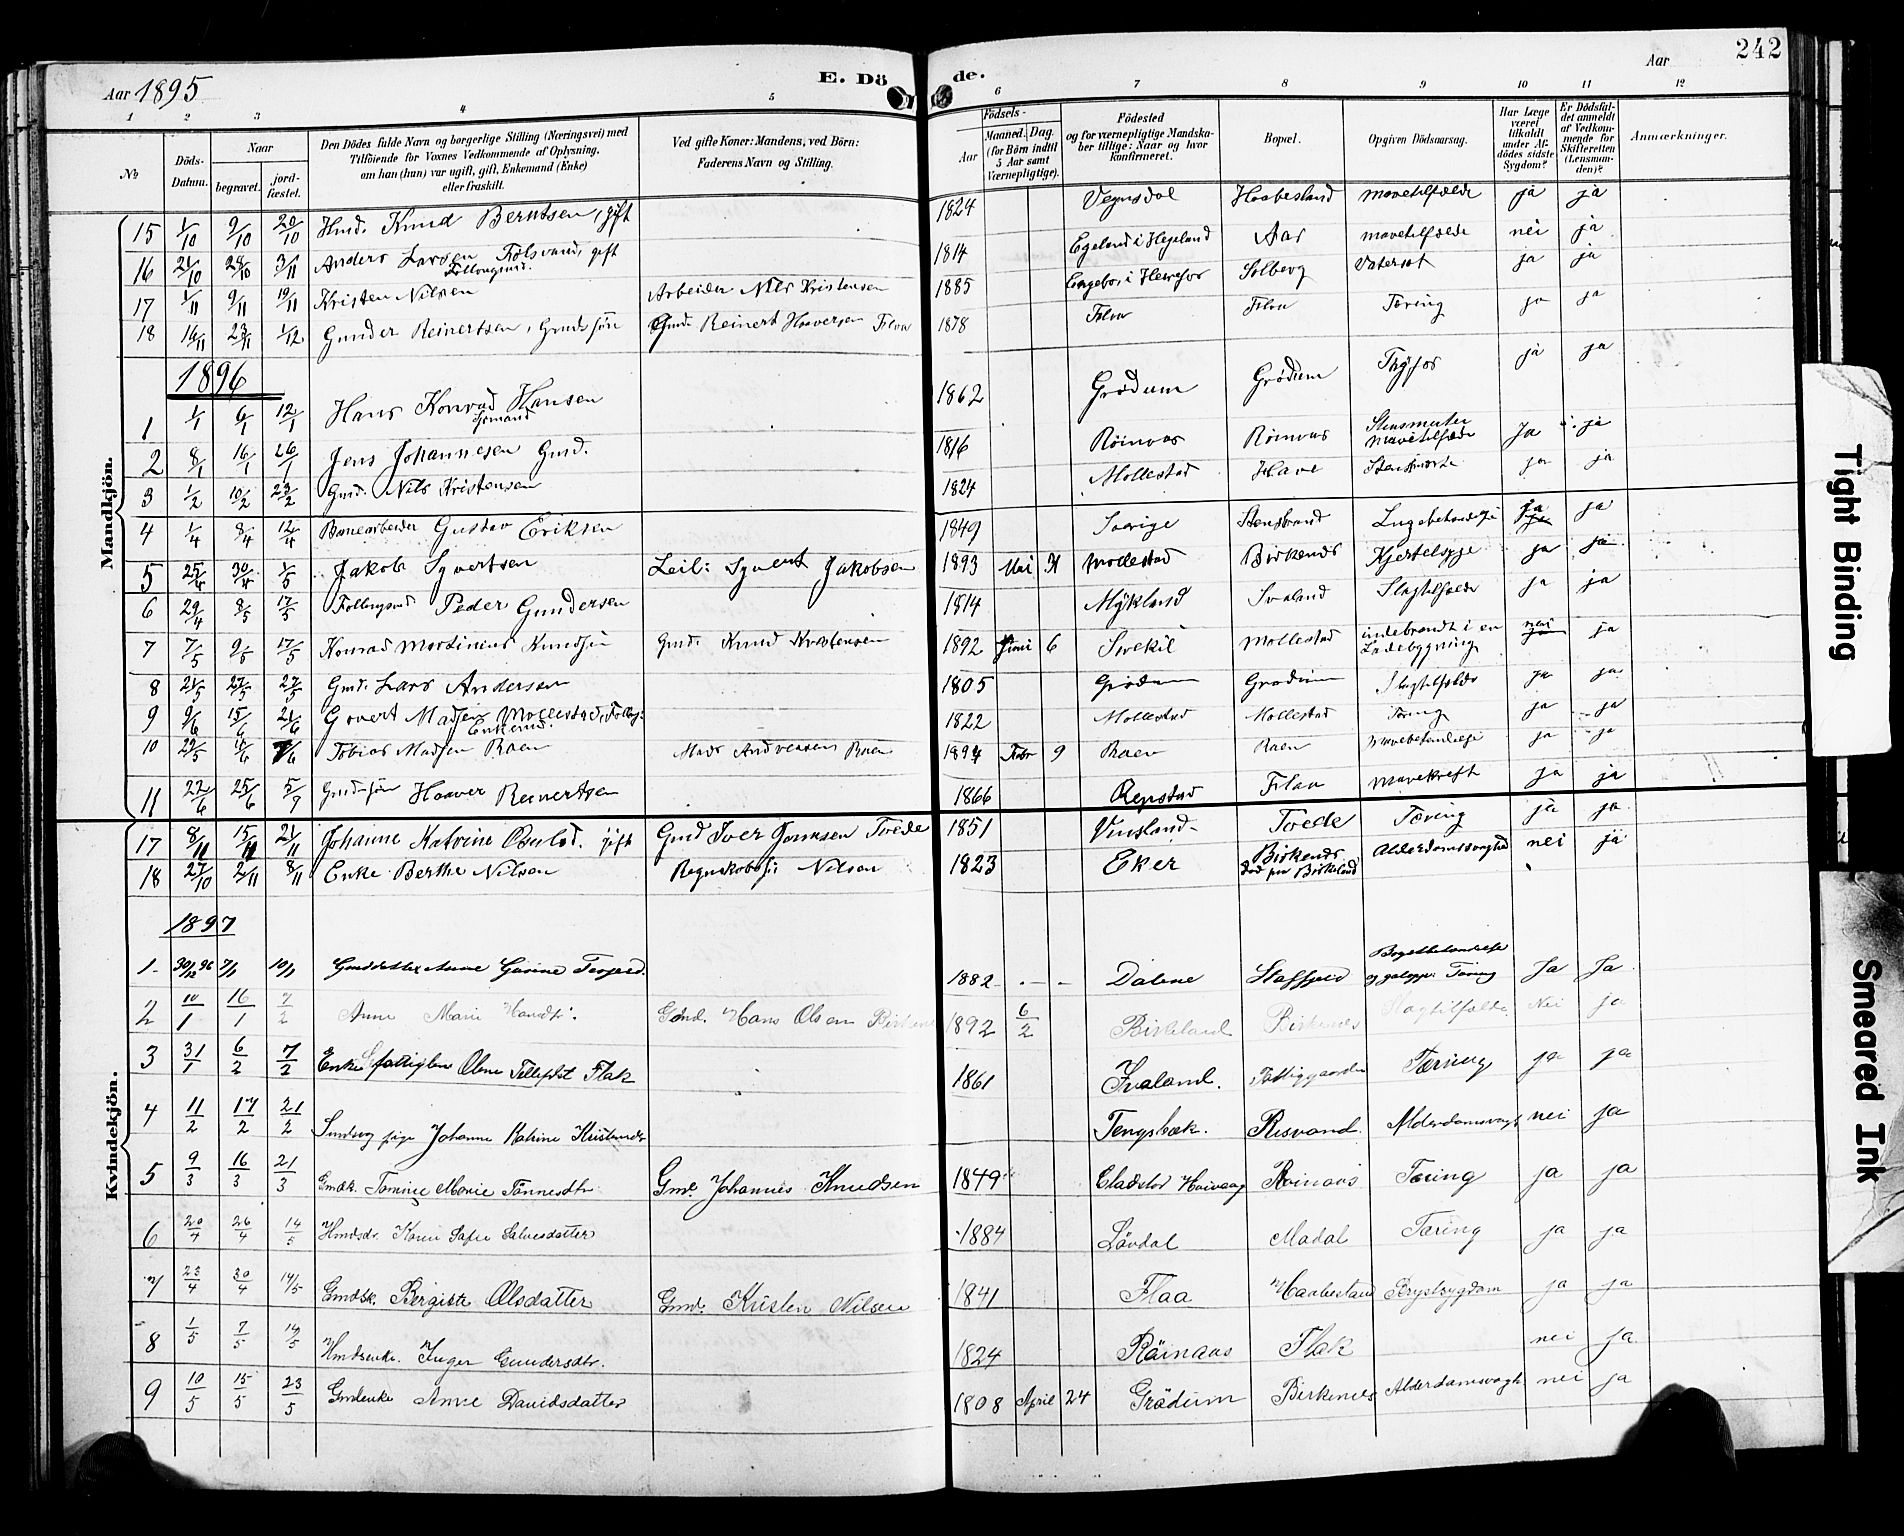 242
Aar 1895
E. Dö de.
Aar
1 2 3 4 5 6 7 8 9 10 11 12
No
Döds-Datum.
Naar
begravet.
jord-fæstet.
Den Dödes fulde Navn og borgerlige Stilling (Næringsvei) med
Tilföiende for Voxnes Vedkommende af Oplysning,
om han (hun) var ugift, gift, Enkemand (Enke)
eller fraskilt.
Ved gifte Koner: Mandens, ved Börn:
Faderens Navn og Stilling.
Födsels-
Aar
Maaned. Dag.
(for Börn indtil
5 Aar samt
Værnepligtige).
Födested
og for værnepligtige Mandska-
ber tillige: Naar og hvor
konfirmeret.
Bopæl.
Opgiven Dödsaarsag.
Har Læge
været
tilkaldt
under Af-
dödes sidste
Sygdom?
Er Dödsfal-
det anmeldt
af Vedkom-
mende for
Skifteretten
(Lensman-
den)?
Anmærkninger.
Mandkjön.
15 1/10 9/10 20/10 Hmd. Knud Berntsen, gift 1824 Vegusdal Haabesland mavetilfælde ja ja
16 21/10 28/10 3/11 Anders Larsen gift 1814 Egeland i Hegeland Aas mavetilfælde nei ja
17 1/11 9/11 19/11 Kristen Nilsen Arbeider Nils Kristensen 1885 Solberg Vatersot ja ja
18 16/11 23/11 1/12 Gunder Reinertsen, Gmdssön Gmd. Reinert Haaversen Flaa 1878 Flaa Flaa Tæring ja ja
1896
1 1/1 6/1 12/1 Hans Konrad Hansen 1862 Grödum Grödum Thyfos ja ja
2 8/1 16/1 26/1 Jens Johannesen Gmd. 1816 Röinaas Röinaas Stensmerter mavetilfælde Ja ja
3 1/2 10/2 23/2 Gmd. Nils Kristensen 1824 Mollestad Have ja ja
4 1/4 8/4 12/4 Banearbeider Gustav Eriksen 1849 Sverige Stensbrand Lugebetændelse ja ja
5 25/4 30/4 1/5 Jakob Syvertsen Leil: Syvert Jakobsen 1893 Mai 31 Mollestad Birkenes Kjertelsyge ja ja
6 29/4 8/5 17/5 Peder Gundersen 1814 Mykland Svaland Slagtilfælde ja ja
7 7/5 9/5 17/5 Konrad Martinius Knudsön Gmd. Knud Kristensen 1892 Juni 6 Mollestad indebrændt i en Ladebygning nei ja
8 21/5 27/5 Gmd. Lars Andersen 1805 Grödum Grödum Slagtilfælde ja ja
9 9/6 15/6 21/6 Govert Madsen Mollestad, Enkemd. 1822 Mollestad Mollestad Tæring ja ja
10 29/5 Tobias Madsen Raen Mads Andreasen Raen 1894 Febr 9 Raen Raen ja ja
11 22/6 25/6 5/7 Gmdssön Haaver Reinertsen 1866 Repstad Flaa Mavekræft ja ja
Kvindekjön.
17 8/11 15/11 21/11 Johanne Katrine gift Gmd Iver Tvede 1851 Vinsland Tvede Tæring ja ja
18 27/10 2/11 8/11 Enke Berthe Nilsen Nilsen 1823 Eker Birkenes död paa Birkeland Alderdomssvaghed nei ja
1897
1 30/12 96 7/1 10/1 Gmddatter Anne Gurine 1882 Dalene Ja Ja
2 10/1 16/1 7/2 Anne Marie Hansdtr. Gmd. Hans Olsen Birkene 1892 6/2 Birkeland Birkenes Slagtilfælde Nei ja
3 31/1 6/2 7/2 Enke Olene Flak 1861 Iveland. Fattiggaarden Tæring ja ja
4 11/2 17/2 21/2 Sindssyg pige Johanne Katrine Tengsbæk. Risvand. Alderdomsvagh nei ja
5 9/3 16/3 21/3 Gmdk. Tomine Marie Tönnesdtr Gmd. Johannes Knudsen 1849 Gladstad Höivaag Röinaas Tæring ja ja
6 20/4 26/4 14/5 Hmdsdr. Karen Sofie Salvesdatter 1884 Lövdal Madal Tæring ja ja
7 23/4 30/4 14/5 Gmdsk. Bergitte Olsdatter Gmd. Kristen Nilsen 1841 Flaa Haabesland Brystsygdom ja ja
8 1/5 7/5 14/5 Hmdsenke. Inger Gundersdtr. 1824 Röinaas Flak nei ja
9 10/5 15/5 23/5 Gmdenke Anne Davidsdatter 1808 April 24 Grödum Birkenes Alderdomsvagh nei ja
Tight Binding
Smeared Ink